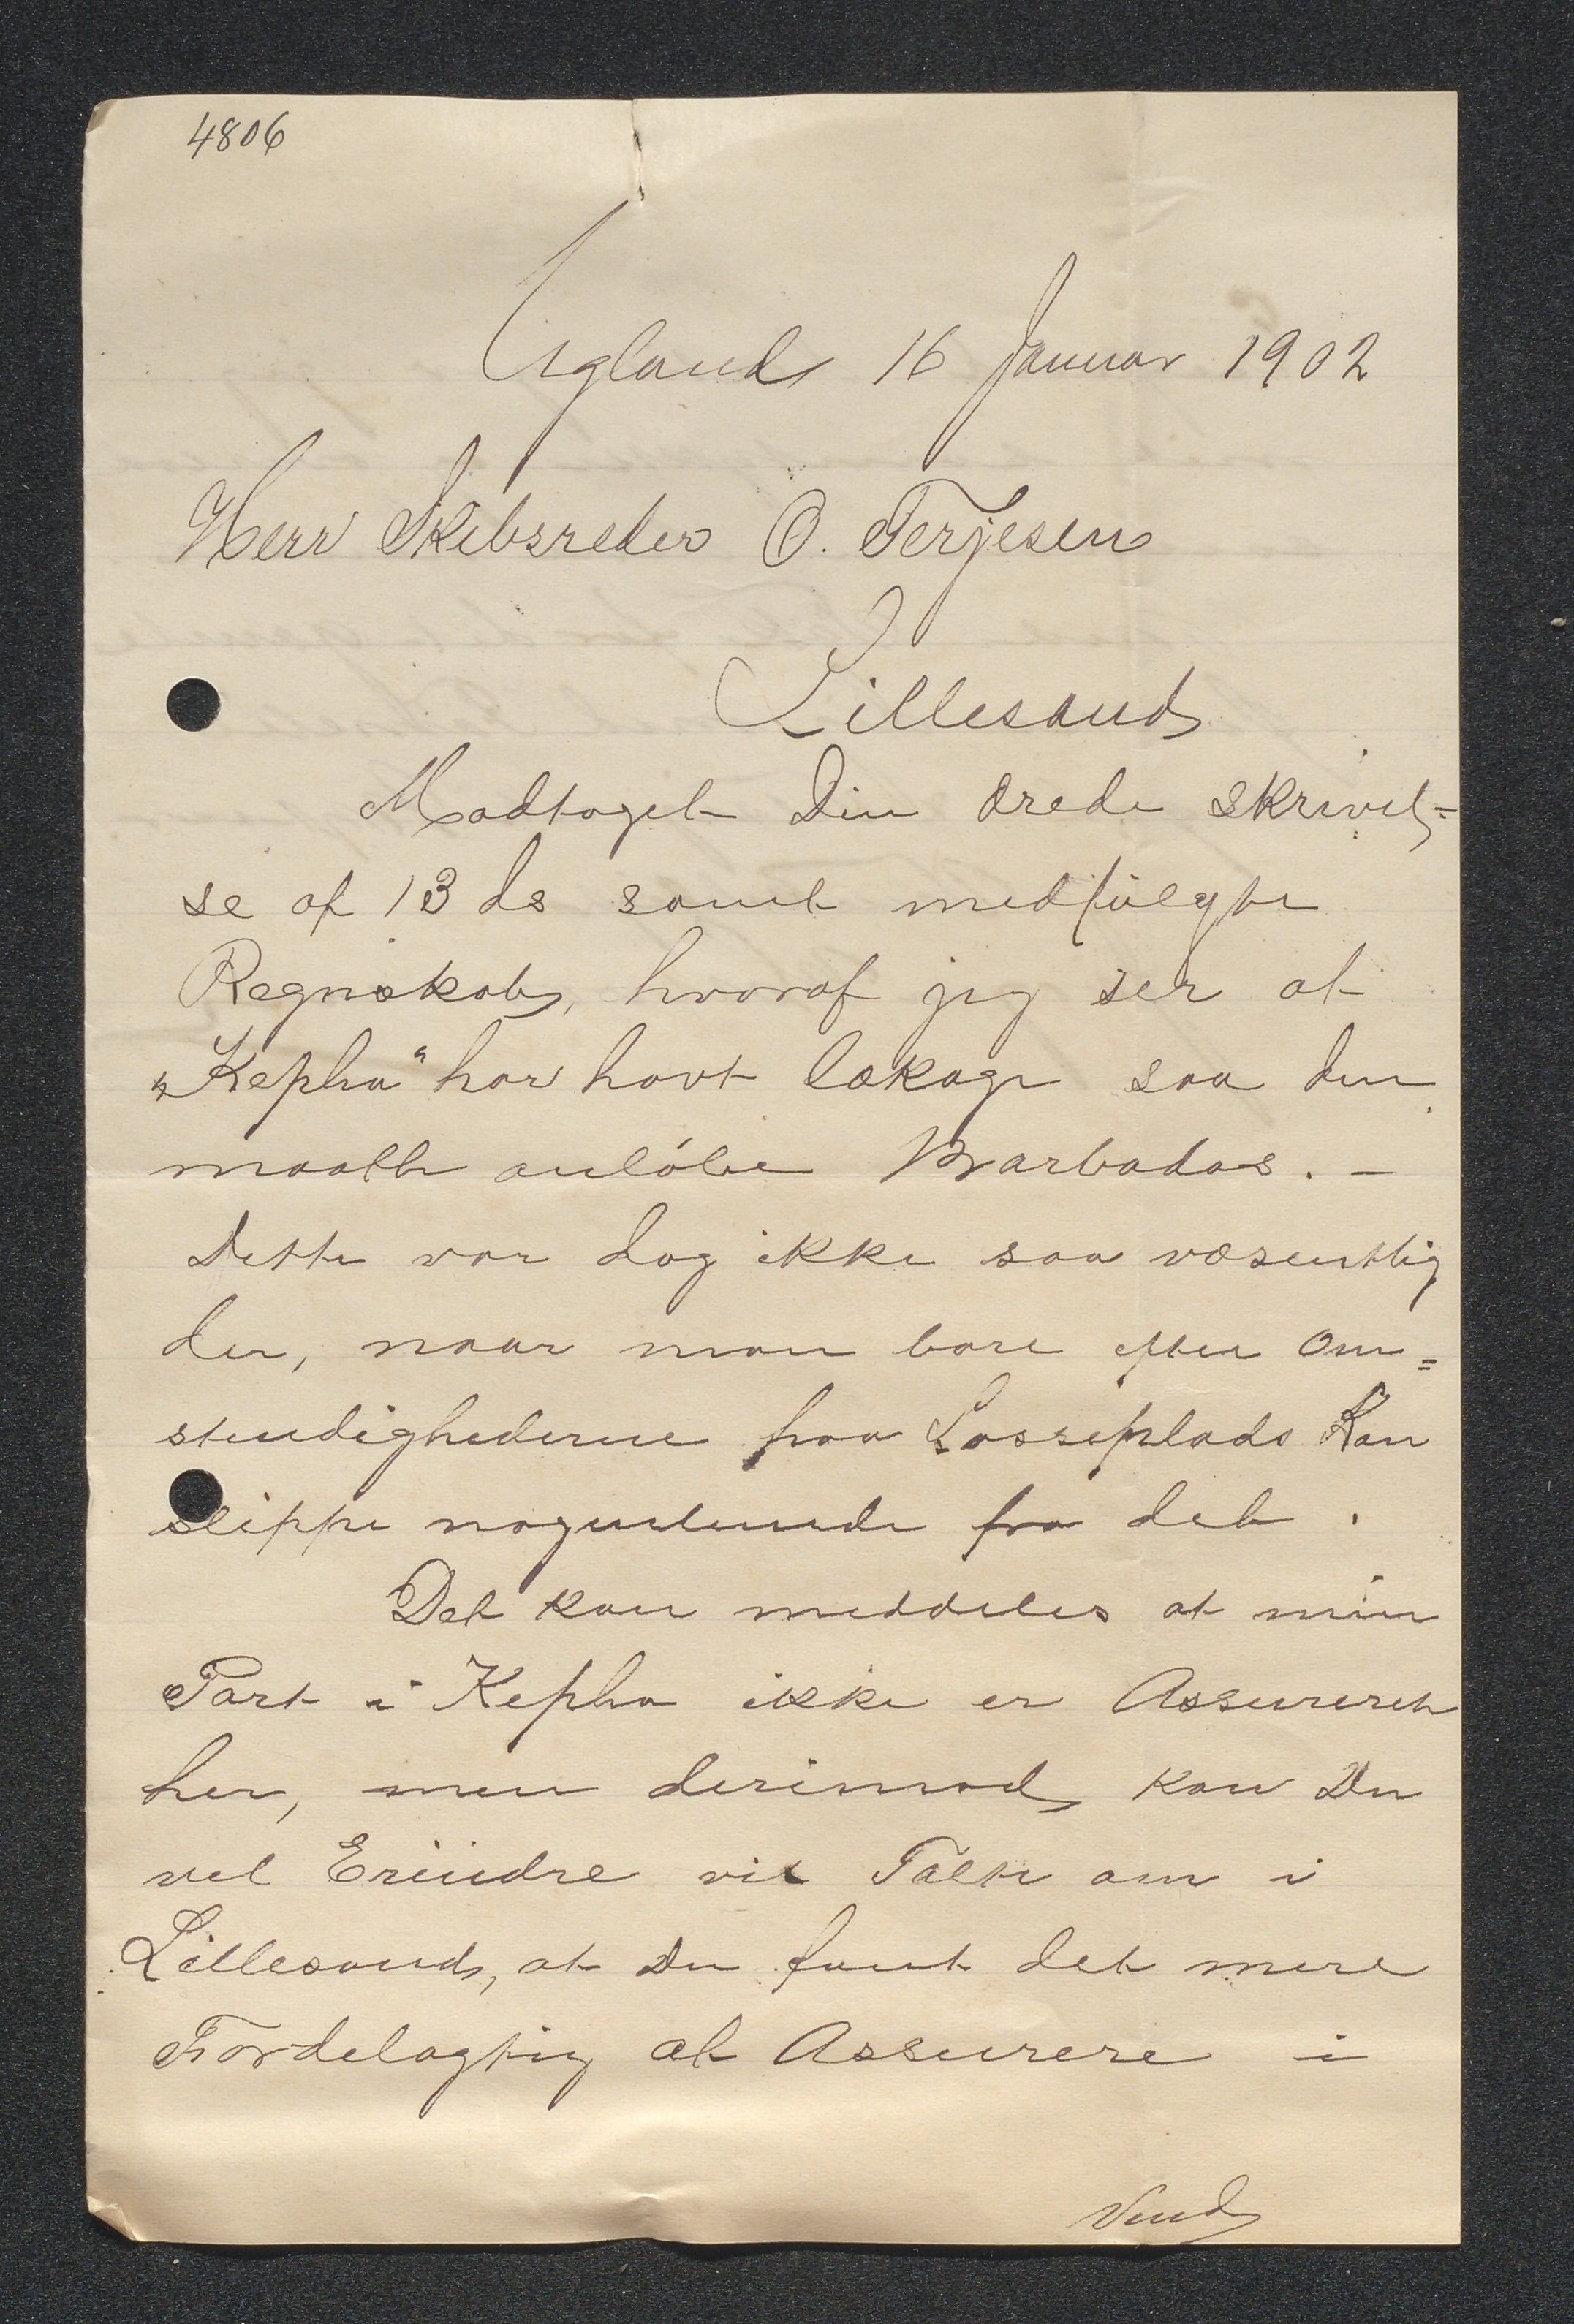 4806
Ugland 16 Januar 1902
Herr Skibsreder O. Terjesen
Lillesand
Modtaget Din ærede skrivel=
se af 13 ds samt medfülgte
Regnskab, hvoraf jeg ser at
„Kepha“ har havt lækage saa den
maatte anløbe Barbados. –
Dette var dog ikke saa væsentlig
der, naar man bare efter Om=
stendighederne paa Losseplads Kan
slippe nogenlunde fra det.
Det kan meddeles at min
Part i Kepha ikke er Assureret
her, men derimod kan Du
vel Erindre vi Talte om i
Lillesand, at Du fant det mere
Fordelagtig at Assurere i
Vend